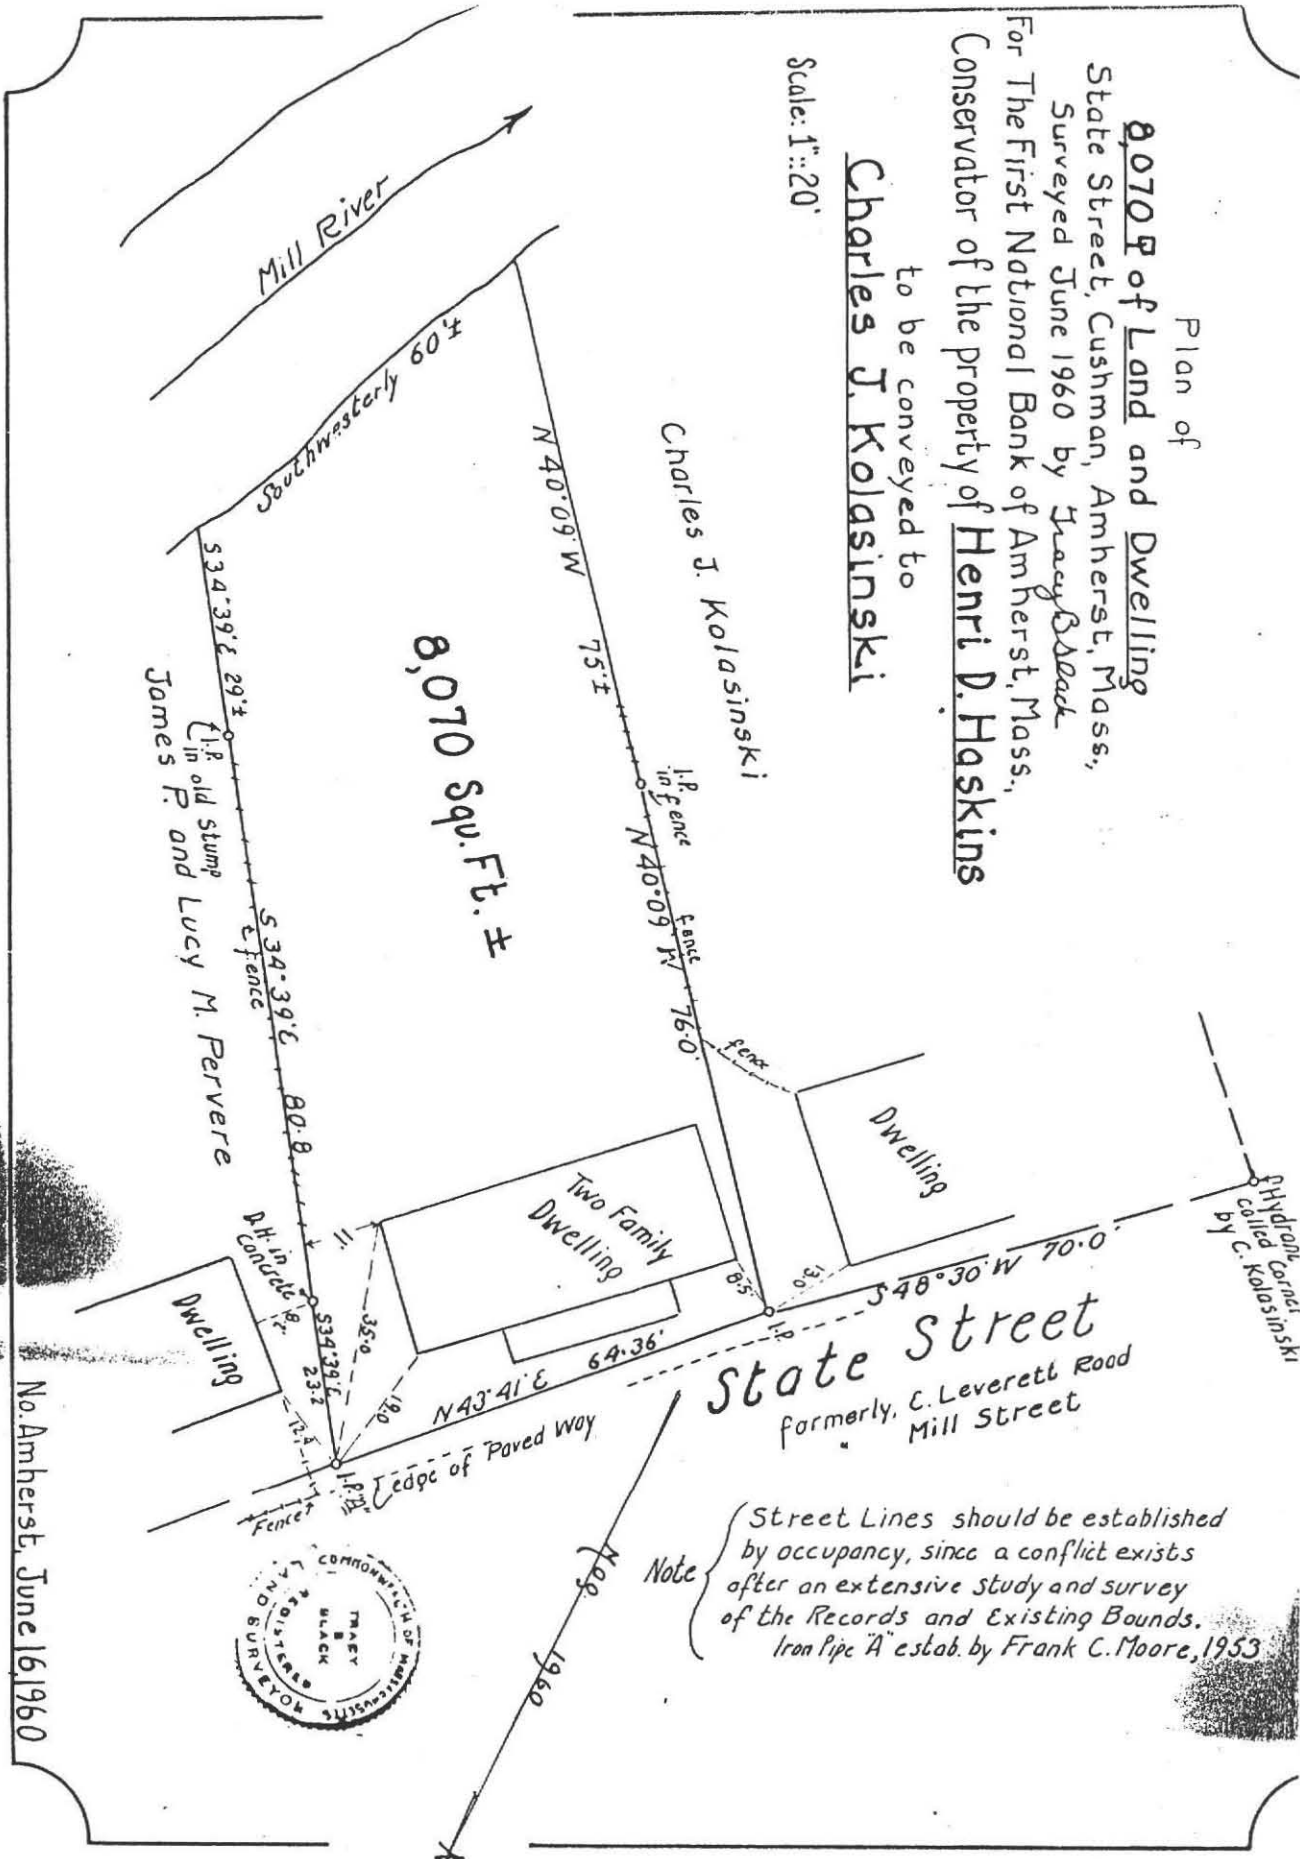 Plan of
8,070 of Land and Dwelling
State Street, Cushman, Amherst, Mass.,
Surveyed June 1960 by Tracy B Slack
For The First National Bank of Amherst, Mass.,
Conservator of the property of Henri D. Haskins
to be conveyed to
Charles J. Kolasinski
Scale: 1"=20'
Mill River
Southwesterly 60'±
N 40°09' W 75'±
Charles J. Kolasinski
I.P.
in fence
N 40°09' W 76.0'
fence
fence
S 34°39'E 29'±
I.P.
in old stump
James P. and Lucy M. Pervere
8,070 Squ. Ft. ±
S 34°39'E 80.8
fence
D.H. in
concrete
S 34°39'E
23.2
Dwelling
Two Family
Dwelling
Dwelling
11'
35.0
19.0
8.5
13.0
N 43°41' E 64.36'
I.P.
I.P. "A"
edge of Paved Way
Fence
S 48°30' W 70.0'
Hydrant
called Corner
by C. Kolasinski
State Street
formerly, C. Leverett Road
" Mill Street
Note
Street Lines should be established
by occupancy, since a conflict exists
after an extensive study and survey
of the Records and Existing Bounds.
Iron Pipe "A" estab. by Frank C. Moore, 1953
Mag 1960
COMMONWEALTH OF MASSACHUSETTS
TRACY
B
SLACK
REGISTERED
LAND SURVEYOR
No. Amherst, June 16, 1960